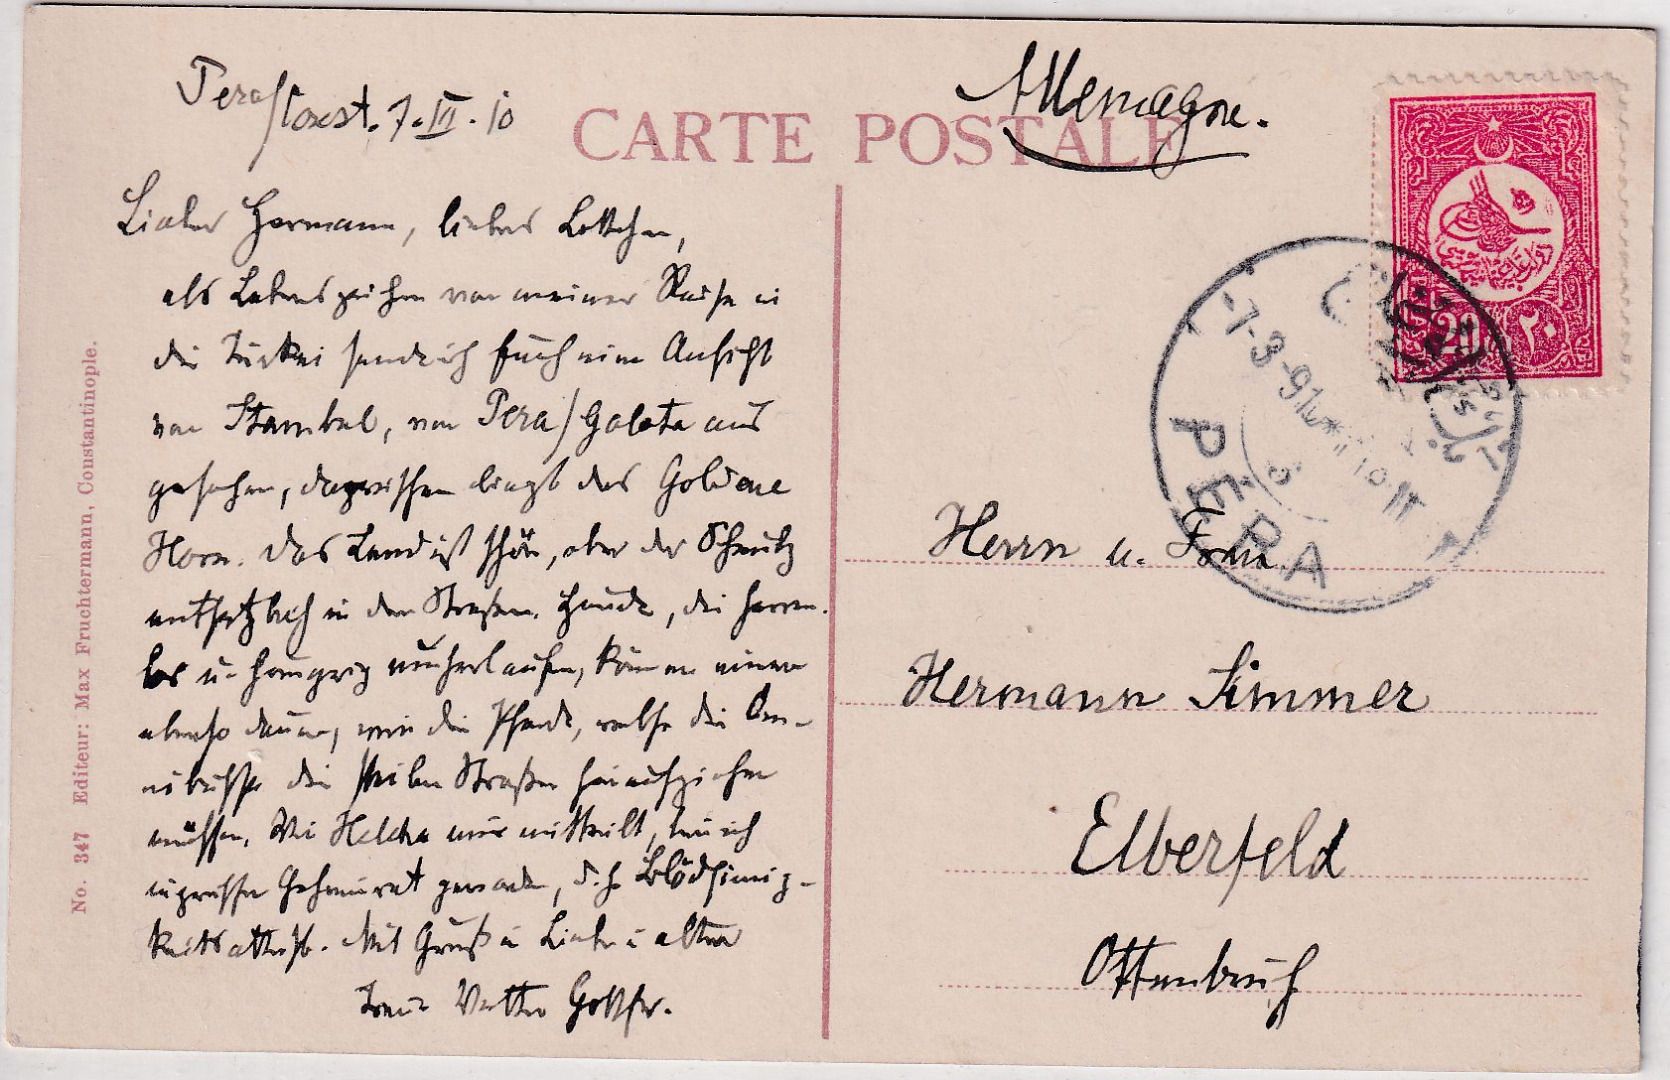 Pera/Const. 7.III.10
CARTE POSTALE
Allemagne.
Lieber Hermann, liebes Lottchen,
als Lebenszeichen von meiner Reise in
die Türkei sende ich Euch eine Ansicht
von Stambul, von Pera/Galata aus
gesehen, dazwischen liegt das Goldene
Horn. Das Land ist schön, aber der Schmutz
entsetzlich in den Straßen. Hunde, die herren-
los u. hungrig umherlaufen, können einen
ebenso dauern, wie die Pferde, welche die Om-
nibusse die steilen Straßen hinaufziehen
müssen. Wie mir mitteilt, bin ich
inzwischen Geheimrat geworden, d. h. Blödsinnig-
keitsattest. Mit Gruß u Liebe i alter
Treue Vetter Gottfr.
No. 347 Editeur: Max Fruchtermann, Constantinople.
20
٢٠
-7-3-91
PERA
Herrn u. Frau
Hermann Simmer
Elberfeld
Ottenbruch